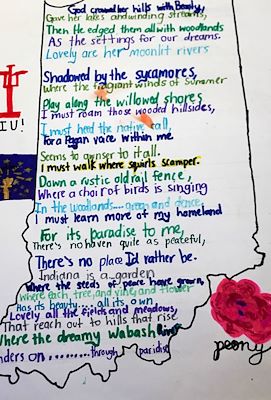 God crowned her hills with Beauty,
Gave her lakes and winding streams,
Then He edged them all with woodlands
As the settings for our dreams.
Lovely are her moonlit rivers
Shadowed by the sycamores,
Where the fragrant winds of Summer
Play along the willowed shores
I must roam those wooded hillsides,
I must heed the native call,
For a Pagan voice within me
Seems to answer to it all.
I must walk where squirls scamper
Down a rustic old rail fence,
Where a choir of birds is singing
In the woodlands....green and dence.
I must learn more of my homeland
For its paradise to me,
There's no haven quite as peaceful,
There's no place I'd rather be.
Indiana is a garden
Where the seeds of peace have grown,
Where each tree, and vine, and flower
Has its beauty.... all its own.
Lovely all the fields and meadows,
That reach out to hills that rise
Where the dreamy Wabash River
nders on.........through paridise
IU!
peony